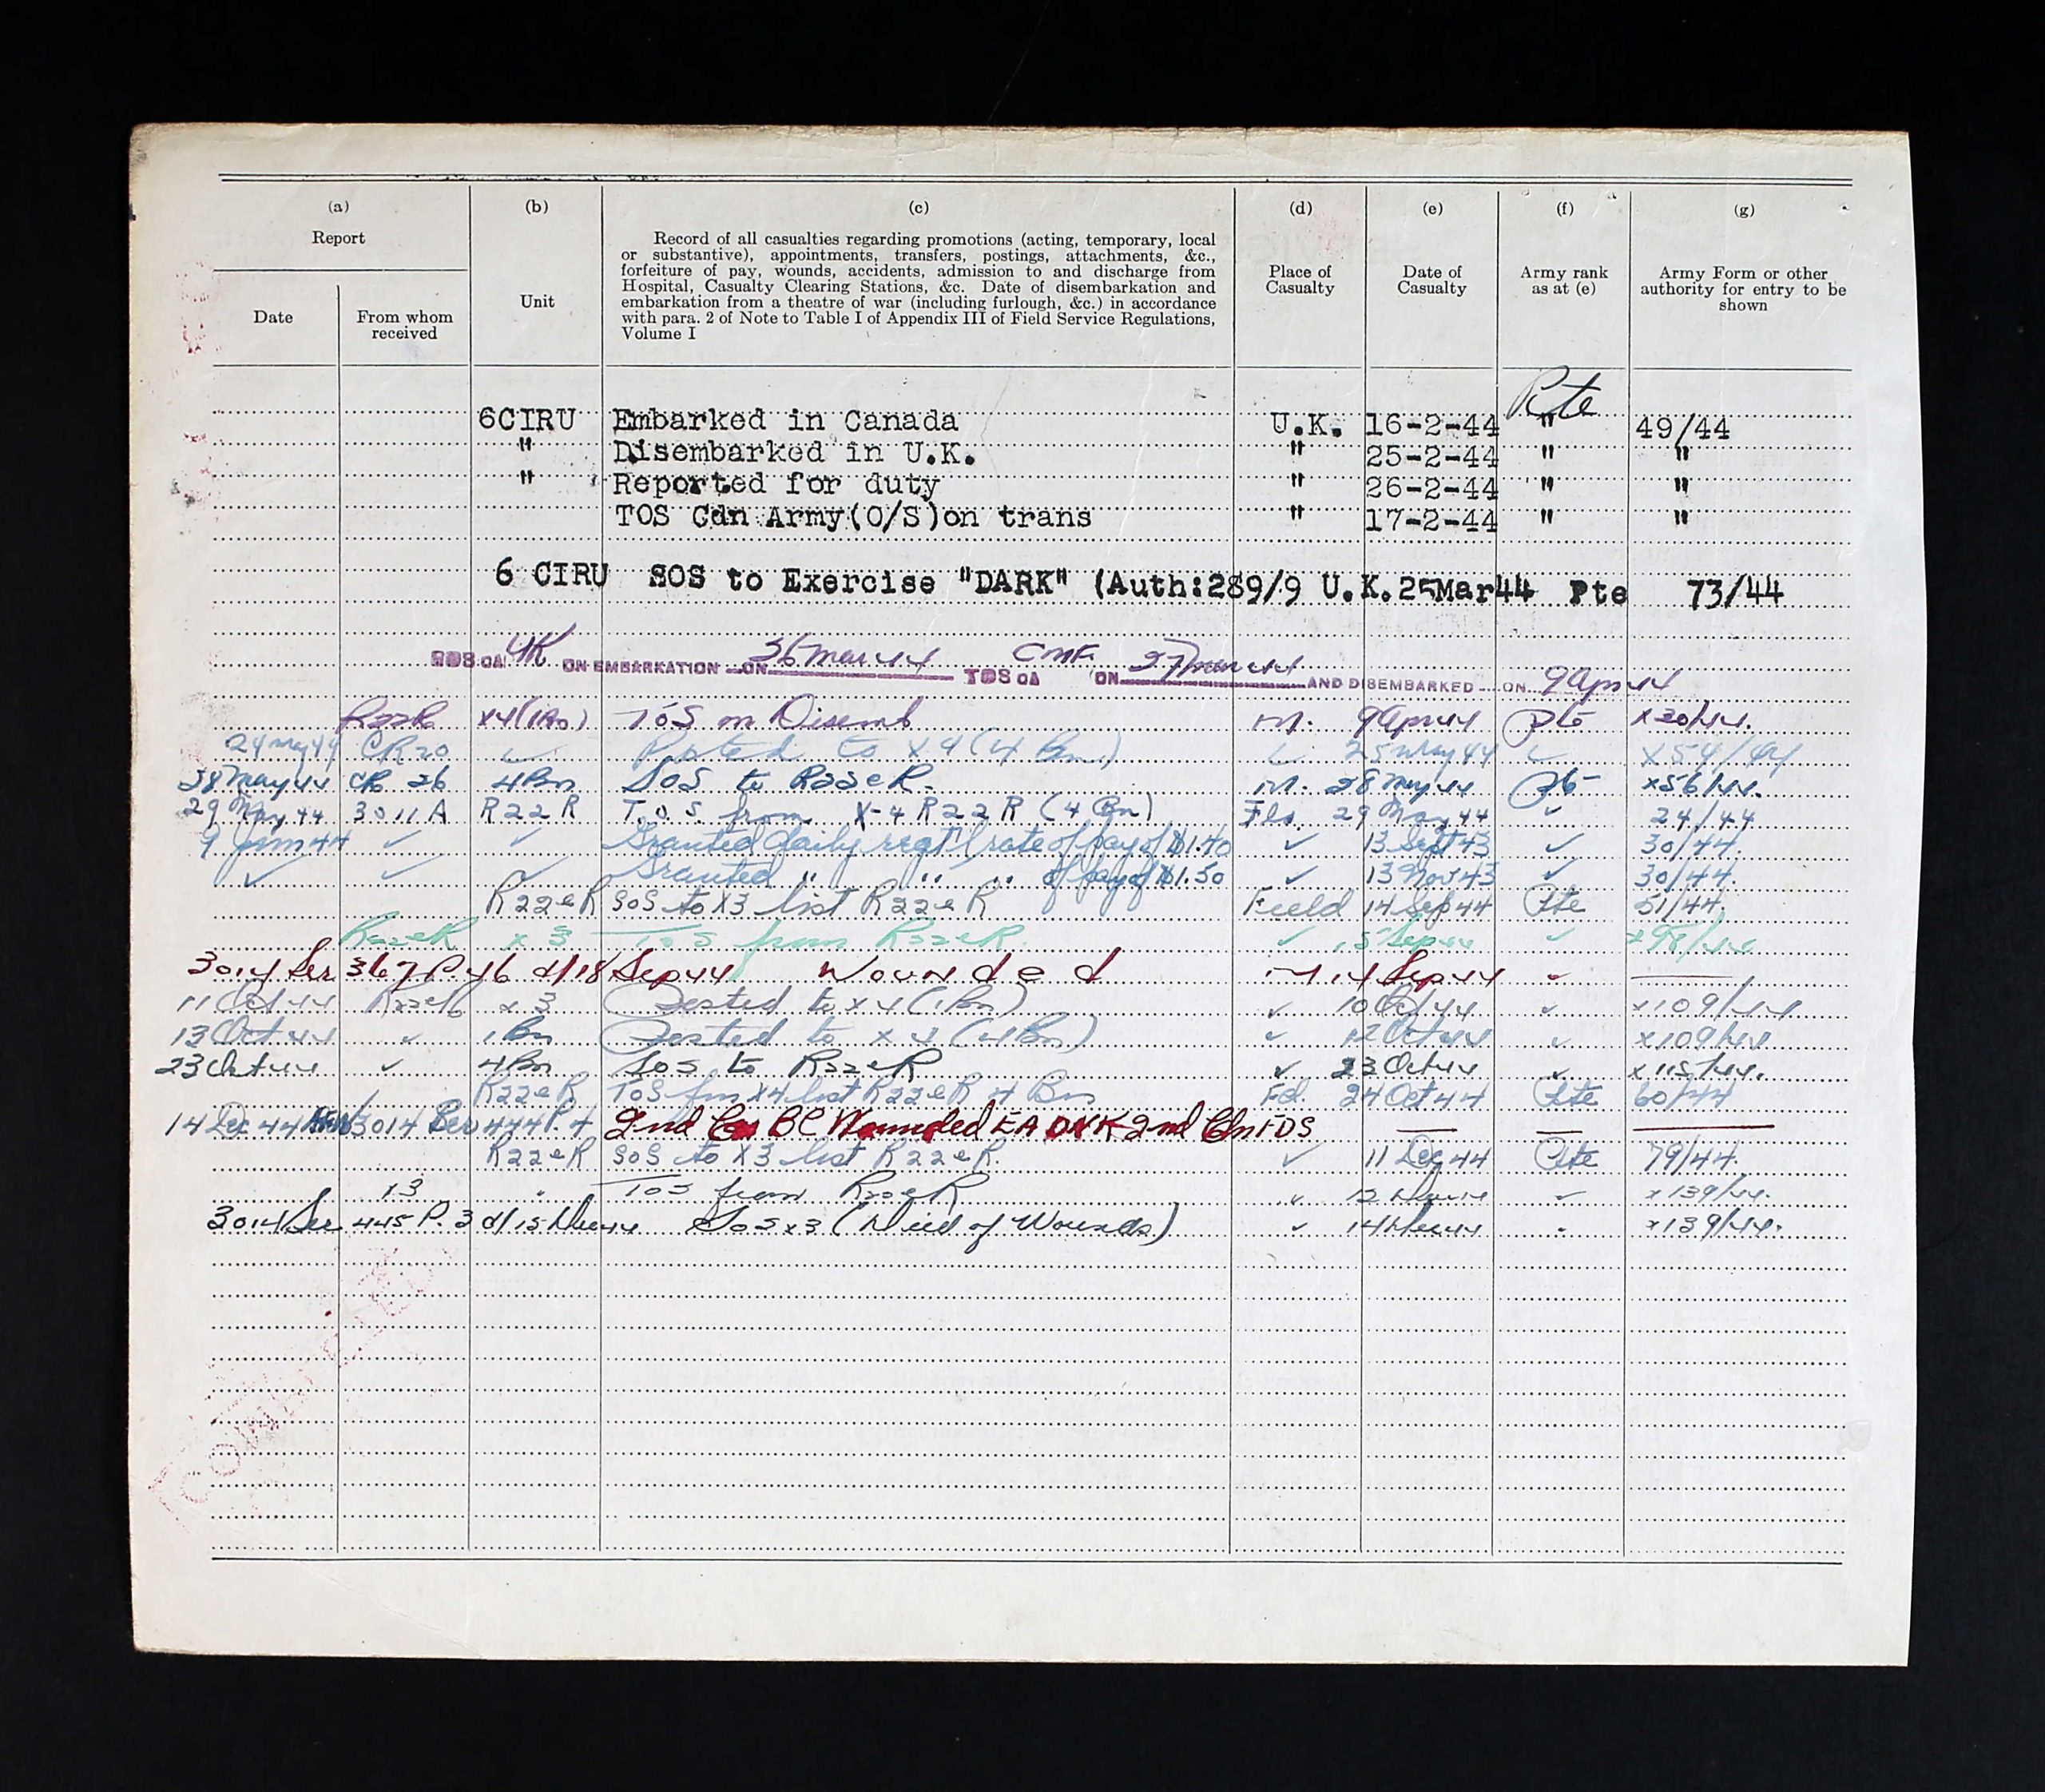 (a) (b) (c) (d) (e) (f) (g)
Report
Date
From whom
received
Unit
Record of all casualties regarding promotions (acting, temporary, local
or substantive), appointments, transfers, postings, attachments, &c.,
forfeiture of pay, wounds, accidents, admission to and discharge from
Hospital, Casualty Clearing Stations, &c. Date of disembarkation and
embarkation from a theatre of war (including furlough, &c.) in accordance
with para. 2 of Note to Table I of Appendix III of Field Service Regulations,
Volume I
Place of
Casualty
Date of
Casualty
Army rank
as at (e)
Army Form or other
authority for entry to be
shown
Pte
6CIRU Embarked in Canada U.K. 16-2-44 " 49/44
" Disembarked in U.K. " 25-2-44 " "
" Reported for duty " 26-2-44 " "
TOS Cdn Army(O/S)on trans " 17-2-44 " "
6 CIRU SOS to Exercise "DARK" (Auth:289/9 U.K.25Mar44 Pte 73/44
SOS CA UK ON EMBARKATION ON 26 Mar 44 TOS CA CMF ON 27 Mar 44 AND DISEMBARKED ON 9 Apr 44
R22R X4(1Bn) TOS on Disemb M. 9 Apr 44 Pte X30/44.
24 May 44 CR20 ✓ Posted to X4 (4 Bn) 25 May 44 ✓ X54/44
28 May 44 CR 26 4Bn SOS to R22eR. M. 28 May 44 Pte X56/44.
29 May 44 3011A R22R T.O.S. from X-4 R22R (4 Bn) Fld. 29 May 44 ✓ 24/44
9 Jun 44 ✓ ✓ Granted daily regt'l rate of pay of $1.40 ✓ 13 Sept 43 ✓ 30/44.
✓ ✓ ✓ Granted " " " of pay of $1.50 ✓ 13 Nov 43 ✓ 30/44.
R22eR SOS to X3 list R22eR Field 14 Sep 44 Pte 51/44.
R22eR X3 TOS from R22eR ✓ 15 Sep 44 ✓ X98/44
3014 Ser 367 P. 46 d/18 Sep 44 Wounded M 14 Sep 44 ✓
11 Oct 44 R22eR X3 Posted to X4 (1Bn) ✓ 10 Oct 44 ✓ X109/44
13 Oct 44 ✓ 1 Bn Posted to X4 (4Bn) ✓ 12 Oct 44 ✓ X109/44
23 Oct 44 ✓ 4Bn SOS to R22eR ✓ 23 Oct 44 ✓ X115/44.
R22eR TOS fm X4 list R22eR 4 Bn Fd. 24 Oct 44 Pte 60/44
14 Dec 44 3014 Ser 444 P. 4 2nd Cas BC Wounded EA DNK 2nd Cdn FDS
R22eR SOS to X3 list R22eR. ✓ 11 Dec 44 Pte 79/44.
X3 " TOS from R22eR ✓ 12 Dec 44 ✓ X139/44.
3014 Ser 445 P. 3 d/15 Dec 44 SOS X3 (Died of Wounds) ✓ 14 Dec 44 " X139/44.